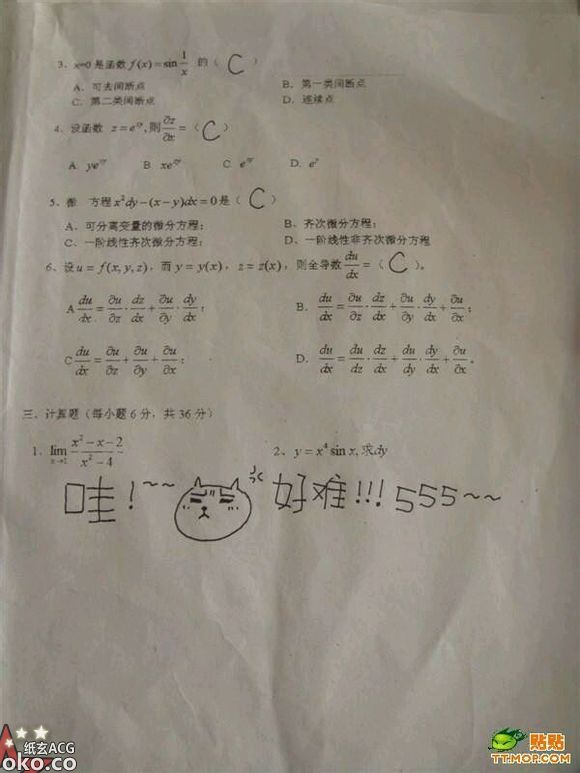 3、x=0 是函数 f(x)=sin 1/x 的（ C ）
A、可去间断点 B、第一类间断点
C、第二类间断点 D、连续点
4、设函数 z=e^{xy}, 则 ∂z/∂x =（ C ）
A. ye^{xy} B. xe^{xy} C. e^{xy} D. e^y
5、微 方程 x²dy-(x-y)dx=0 是（ C ）
A、可分离变量的微分方程； B、齐次微分方程；
C、一阶线性齐次微分方程； D、一阶线性非齐次微分方程
6、设 u=f(x,y,z)，而 y=y(x)，z=z(x)，则全导数 du/dx =（ C ）。
A du/dx = ∂u/∂z · dz/dx + ∂u/∂y · dy/dx； B、 du/dx = ∂u/∂z · dz/dx + ∂u/∂y · dy/dx + ∂u/∂x；
C du/dx = ∂u/∂z + ∂u/∂y + ∂u/∂x； D、 du/dx = du/dz · dz/dx + du/dy · dy/dx + ∂u/∂x。
三、计算题（每小题 6 分，共 36 分）
1、 lim x²-x-2 / x²-4 2、y=x⁴ sin x, 求dy
哇！~~ 好难!!! 555~~
纸玄ACG
oko.co
贴贴
TT.MOP.COM